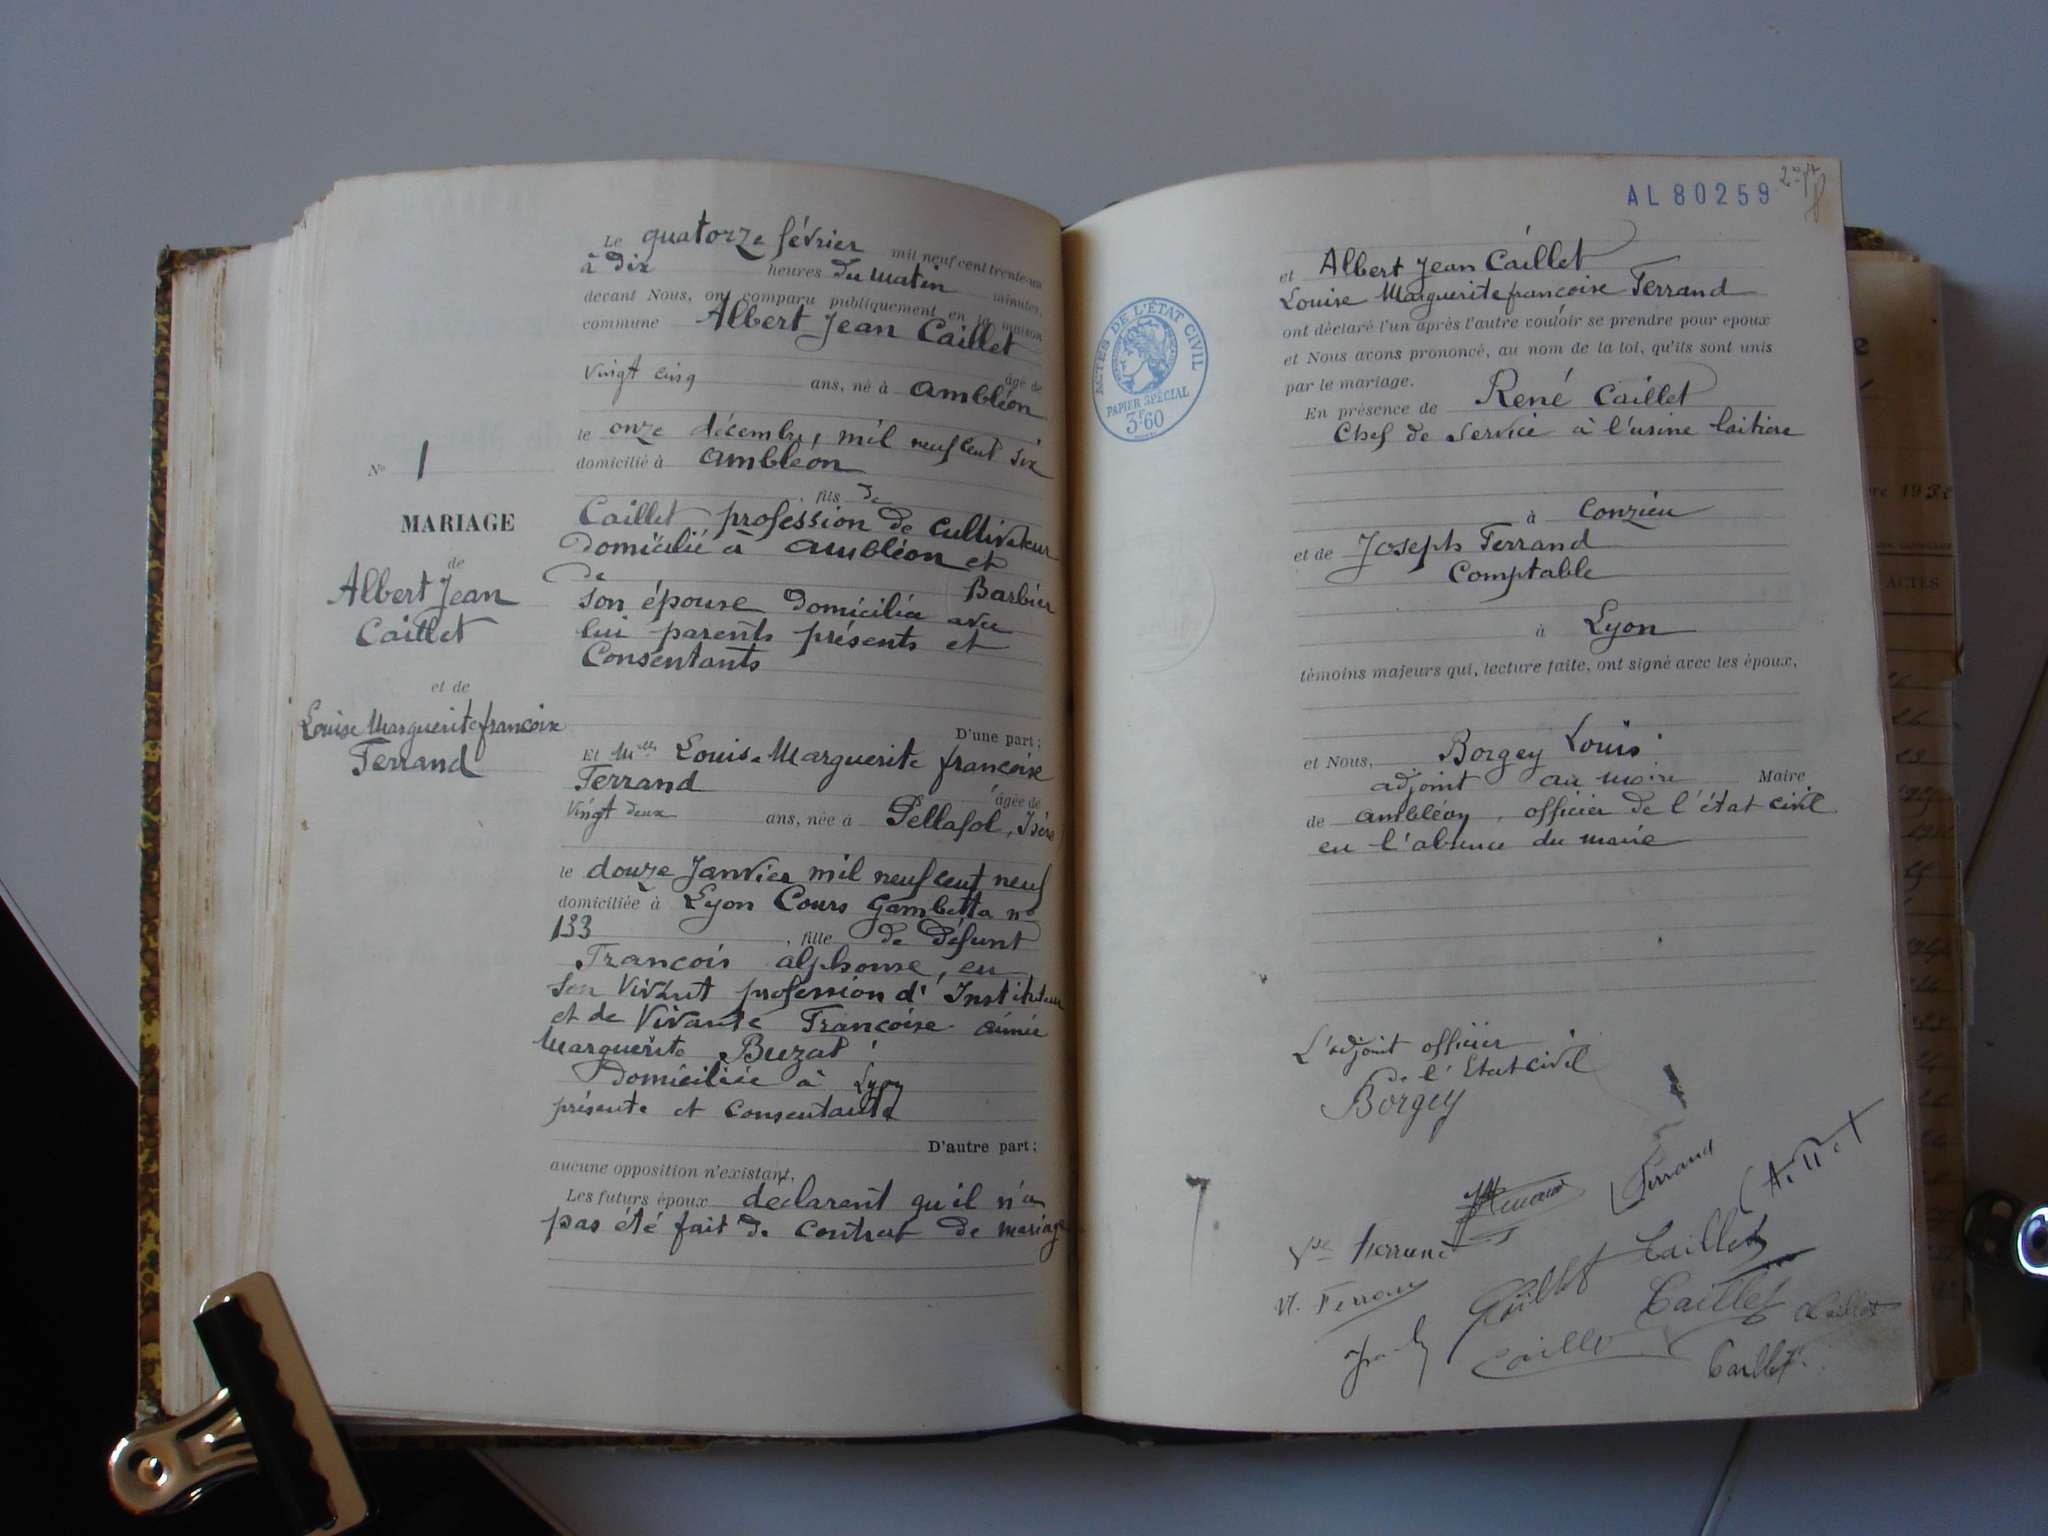 Le quatorze février mil neuf cent trente-un
à dix heures du matin minutes,
devant Nous, ont comparu publiquement en la maison
commune Albert Jean Caillet
âgé de
vingt cinq ans, né à Ambléon
le onze décembre, mil neuf cent six
domicilié à Ambléon
fils de
Caillet profession de cultivateur
domicilié à Ambléon et
de Barbier
son épouse domiciliée avec
lui parents présents et
consentants
D'une part;
Nº 1
MARIAGE
de
Albert Jean
Caillet
et de
Louise Marguerite françoise
Ferrand
Et Mlle Louise Marguerite françoise
Ferrand âgée de
vingt deux ans, née à Pellafol, Isère
le douze Janvier mil neuf cent neuf
domiciliée à Lyon Cours Gambetta nº
133, fille de défunt
François alphonse, en
son vivant profession d'Instituteur
et de vivante Françoise aimée
Marguerite Buzat
domiciliée à Lyon
présente et consentante
D'autre part;
aucune opposition n'existant,
Les futurs époux déclarent qu'il n'a
pas été fait de contrat de mariage
AL 80259
ACTES DE L'ÉTAT CIVIL
PAPIER SPÉCIAL
3F60
et Albert Jean Caillet
Louise Marguerite françoise Ferrand
ont déclaré l'un après l'autre vouloir se prendre pour époux
et Nous avons prononcé, au nom de la loi, qu'ils sont unis
par le mariage.
En présence de René Caillet
Chef de service à l'usine laitière
à Conzieu
et de Joseph Ferrand
Comptable
à Lyon
témoins majeurs qui, lecture faite, ont signé avec les époux,
et Nous, Borgey Louis
adjoint au maire Maire
de Ambléon, officier de l'état civil
en l'absence du maire
L'adjoint officier
de l'Etat civil
Borgey
Ferrand
Caillet
Caillet
Caillet
ACTES